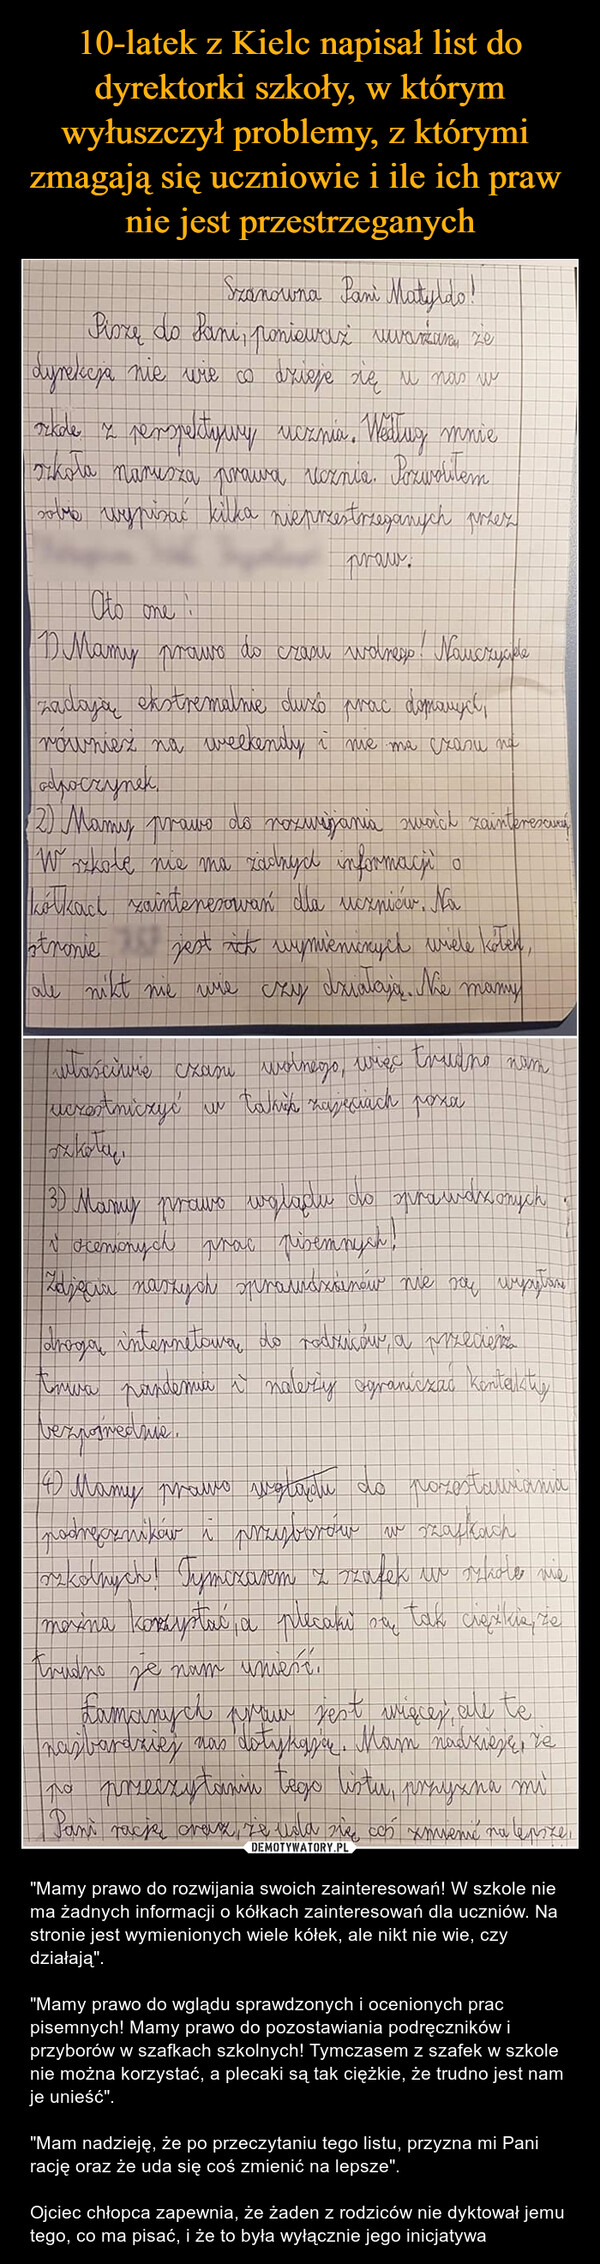 10-latek z Kielc napisał list do
dyrektorki szkoły, w którym
wyłuszczył problemy, z którymi
zmagają się uczniowie i ile ich praw
nie jest przestrzeganych
Szanowna Pani Matyldo!
Piszę do Pani, ponieważ uważam, że
dyrekcja nie wie co dzieje się u nas w
szkole z perspektywy ucznia. Według mnie
szkoła narusza prawa ucznia. Pozwoliłem
sobie wypisać kilka nieprzestrzeganych przez
praw.
Oto one:
1) Mamy prawo do czasu wolnego! Nauczyciele
zadają ekstremalnie dużo prac domowych,
również na weekendy i nie ma czasu na
odpoczynek.
2) Mamy prawo do rozwijania swoich zainteresowań!
W szkole nie ma żadnych informacji o
kółkach zainteresowań dla uczniów. Na
stronie jest ich wymienionych wiele kółek,
ale nikt nie wie czy działają. Nie mamy
właściwie czasu wolnego, więc trudno nam
uczestniczyć w takich zajęciach poza
szkołą.
3) Mamy prawo wglądu do sprawdzonych
i ocenionych prac pisemnych!
Zdjęcia naszych sprawdzianów nie są wysyłane
drogą internetową do rodziców, a przecież
trwa pandemia i należy ograniczać kontakty
bezpośrednie.
4) Mamy prawo wglądu do pozostawiania
podręczników i przyborów w szafkach
szkolnych! Tymczasem z szafek w szkole nie
można korzystać, a plecaki są tak ciężkie, że
trudno je nam unieść.
Łamanych praw jest więcej, ale te
najbardziej nas dotykają. Mam nadzieję, że
po przeczytaniu tego listu, przyzna mi
Pani rację oraz, że uda się coś zmienić na lepsze.
DEMOTYWATORY.PL
"Mamy prawo do rozwijania swoich zainteresowań! W szkole nie
ma żadnych informacji o kółkach zainteresowań dla uczniów. Na
stronie jest wymienionych wiele kółek, ale nikt nie wie, czy
działają".
"Mamy prawo do wglądu sprawdzonych i ocenionych prac
pisemnych! Mamy prawo do pozostawiania podręczników i
przyborów w szafkach szkolnych! Tymczasem z szafek w szkole
nie można korzystać, a plecaki są tak ciężkie, że trudno jest nam
je unieść".
"Mam nadzieję, że po przeczytaniu tego listu, przyzna mi Pani
rację oraz że uda się coś zmienić na lepsze".
Ojciec chłopca zapewnia, że żaden z rodziców nie dyktował jemu
tego, co ma pisać, i że to była wyłącznie jego inicjatywa